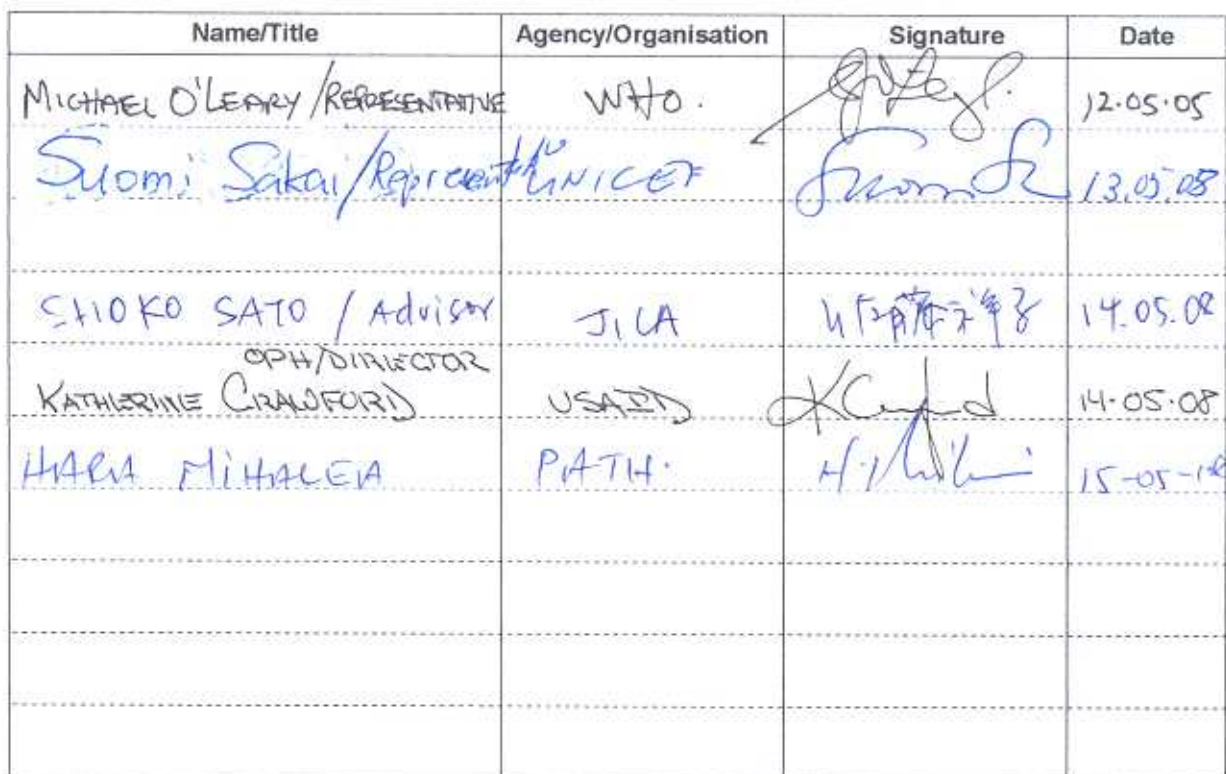 Name/Title Agency/Organisation Signature Date
MICHAEL O'LEARY/REPRESENTATIVE WHO. 12.05.05
Suomi Sakai/Representative UNICEF 13.05.08
SHOKO SATO / Advisor JICA 14.05.08
OPH/DIRECTOR
KATHERINE CRAWFORD USAID 14.05.08
HARA MIHALEA PATH. 15-05-